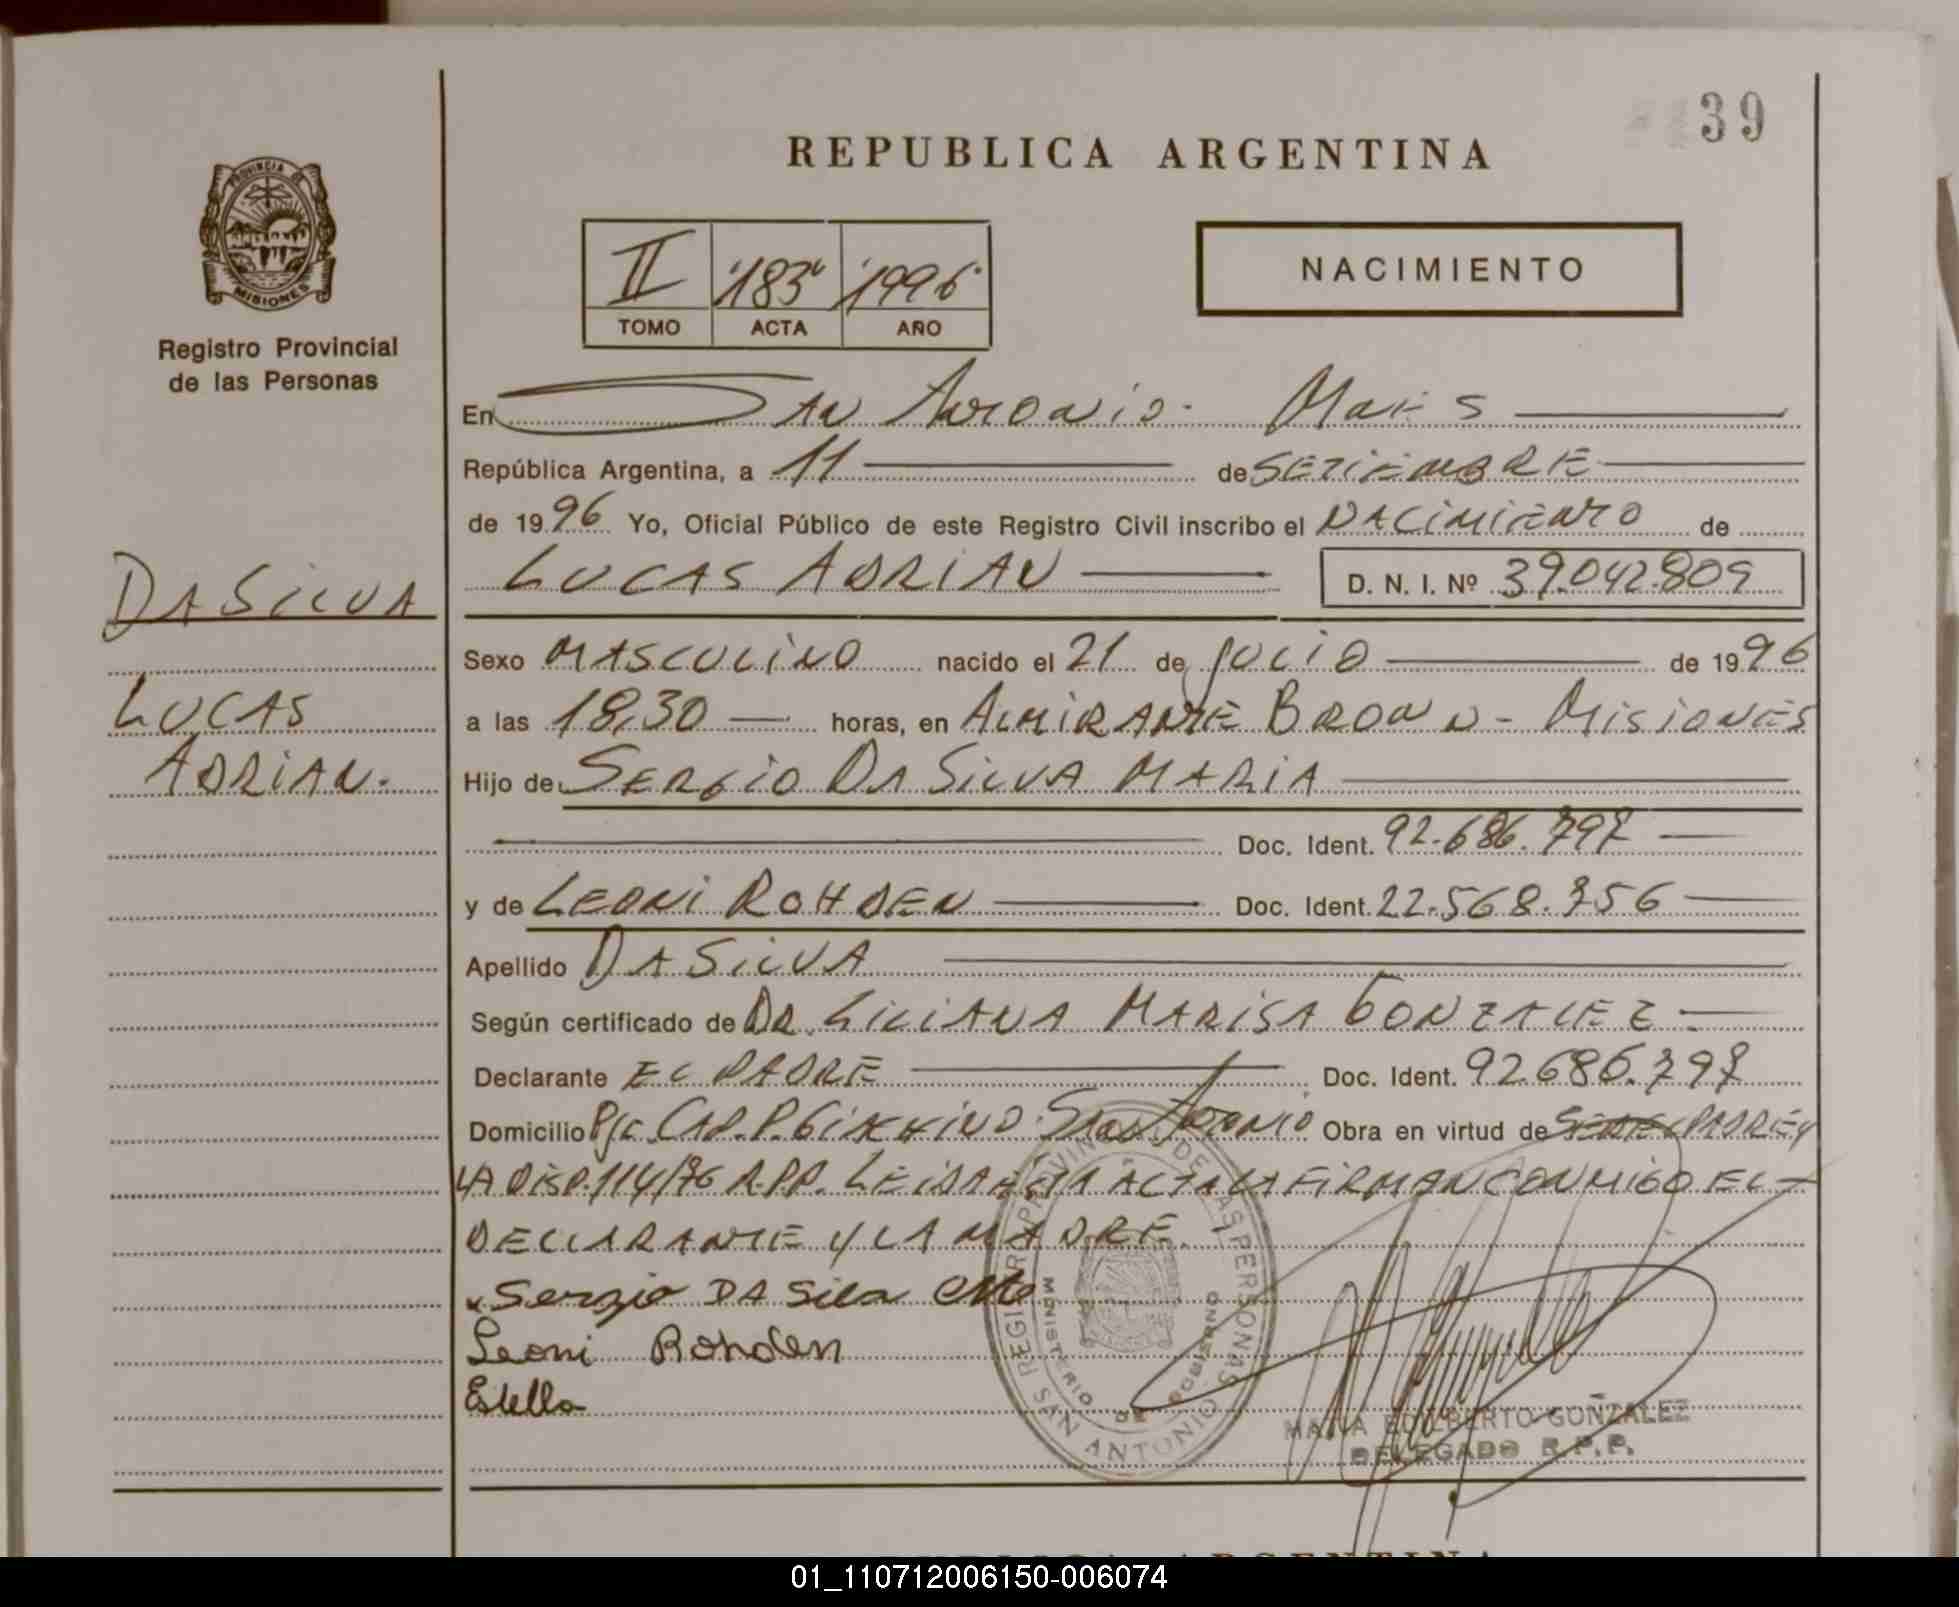 39
REPUBLICA ARGENTINA
PROVINCIA DE
MISIONES
II "183" "1996"
TOMO ACTA AÑO
NACIMIENTO
Registro Provincial
de las Personas
En SAN ANTONIO - Mnes
República Argentina, a 11 de SETIEMBRE
de 1996 Yo, Oficial Público de este Registro Civil inscribo el NACIMIENTO de
LUCAS ADRIAN D. N. I. Nº 39.042.809
DA SILVA
LUCAS
ADRIAN.
Sexo MASCULINO nacido el 21 de JULIO de 1996
a las 18,30 horas, en ALMIRANTE BROWN - MISIONES
Hijo de SERGIO DA SILVA MARIA
Doc. Ident. 92.686.797
y de LEONI ROHDEN Doc. Ident. 22.568.756
Apellido DA SILVA
Según certificado de DR. LILIANA MARISA GONZALEZ
Declarante EL PADRE Doc. Ident. 92.686.797
Domicilio P/C CAP. P. GIACHINO SAN ANTONIO Obra en virtud de SER EL PADRE Y
LA DISP. 114/96 R.P.P. LEIDA ESTA ACTA LA FIRMAN CONMIGO EL
DECLARANTE Y LA MADRE.
Sergio DA Silva
Leoni Rohden
Estella
REGISTRO PROVINCIAL DE LAS PERSONAS
MINISTERIO DE GOBIERNO
SAN ANTONIO
EDILBERTO GONZALEZ
DELEGADO R.P.P.
01_110712006150-006074